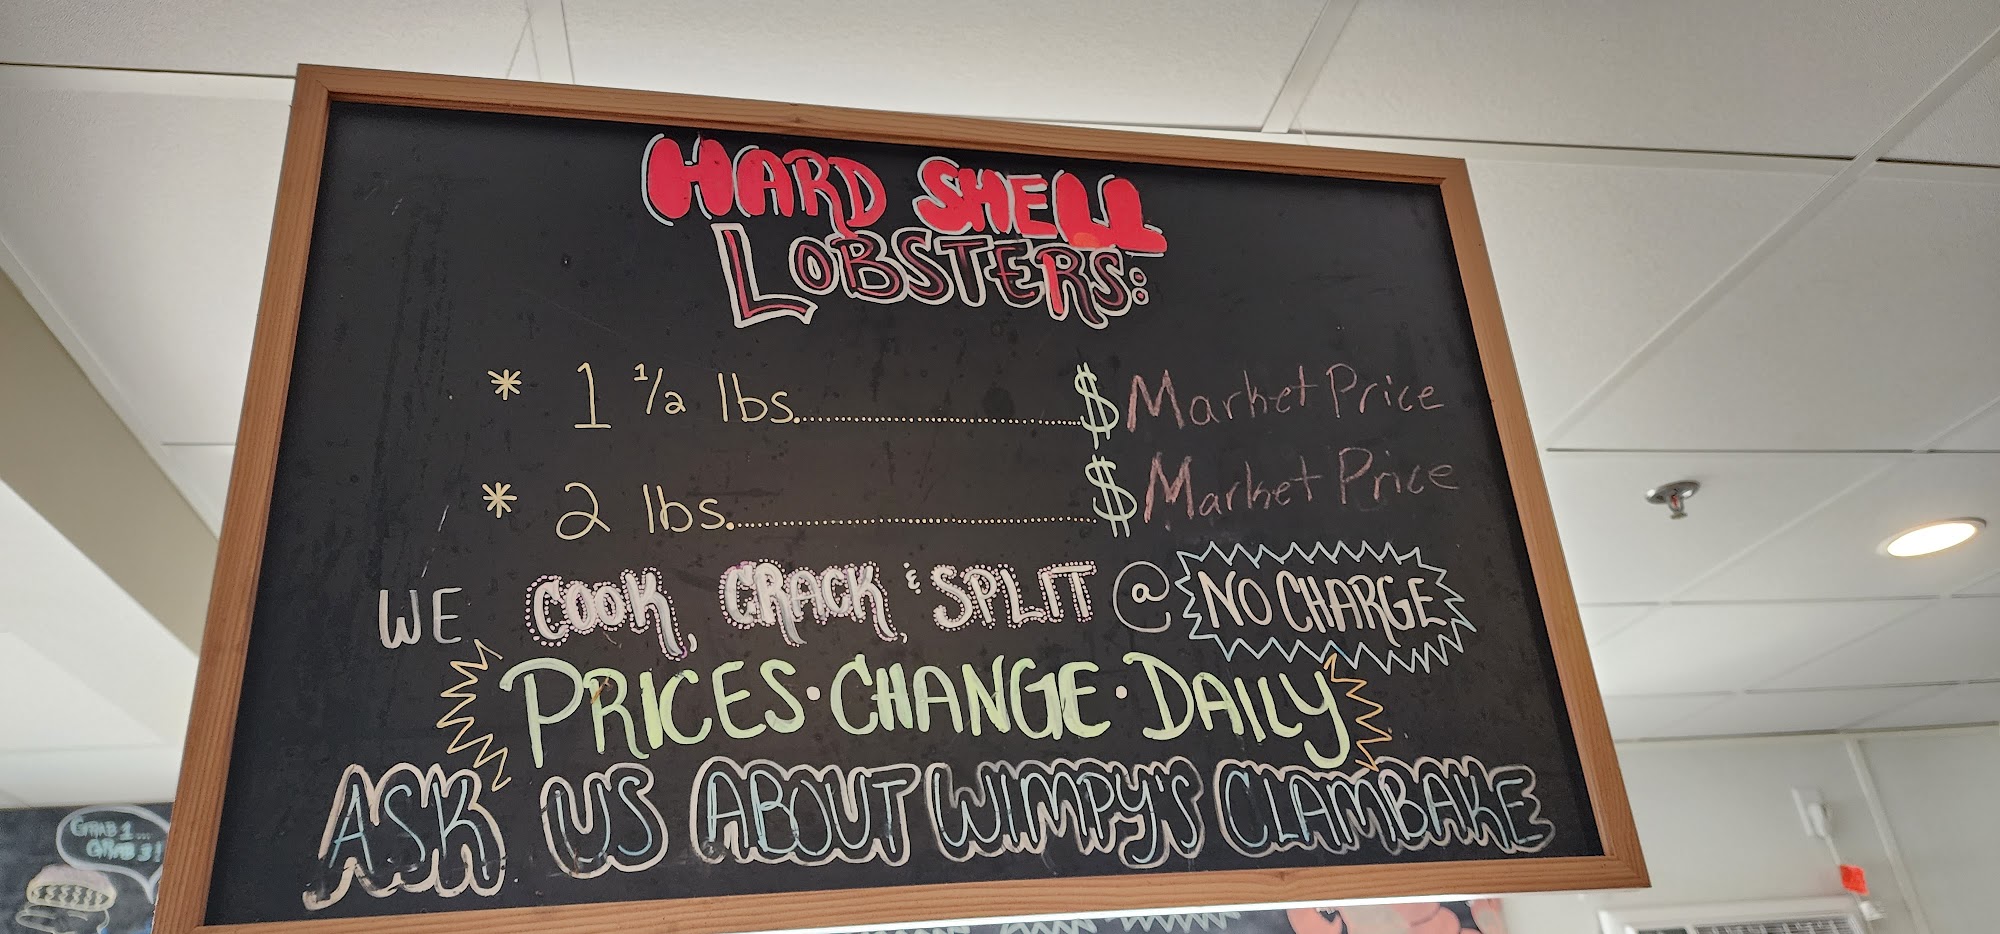 HARD SHELL
LOBSTERS:
* 1 1/2 lbs..........$ Market Price
* 2 lbs..........$ Market Price
WE COOK, CRACK, & SPLIT @ NO CHARGE
PRICES · CHANGE · DAILY
ASK US ABOUT WIMPY'S CLAMBAKE
GRAB 1...
GRAB 3!